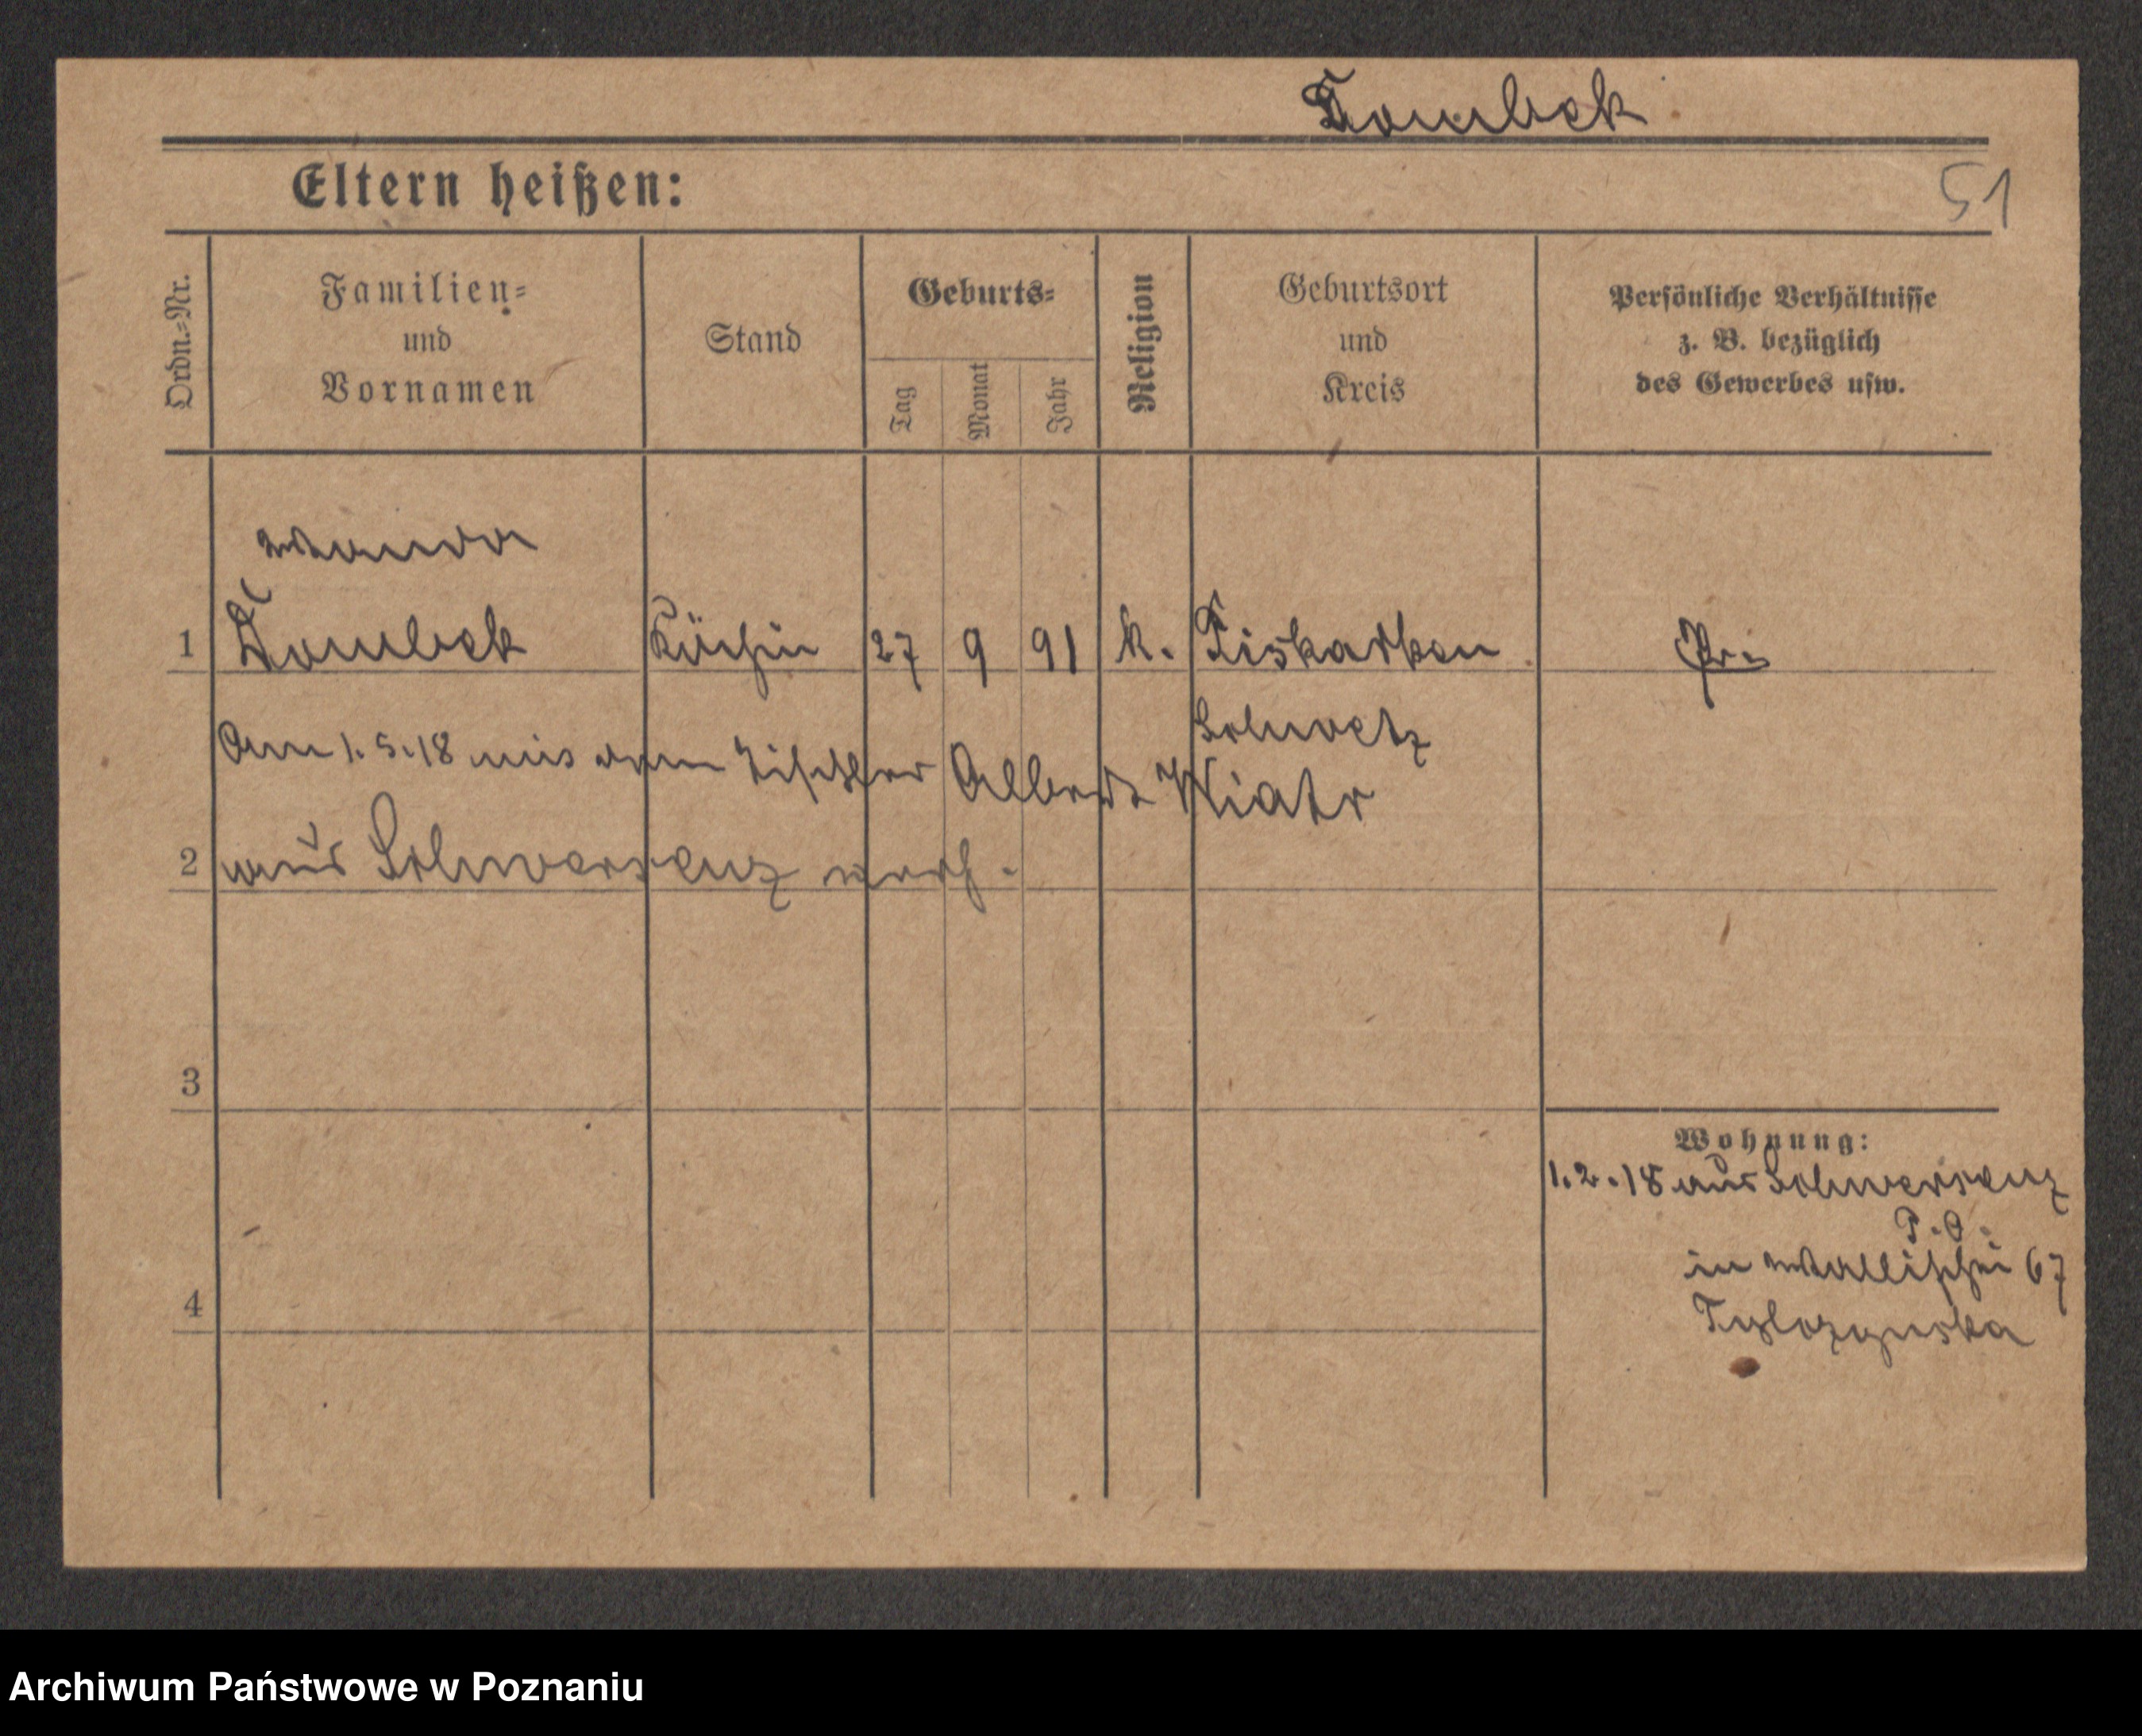 Dombek
Eltern heißen:
51
Ordn.-Nr.
Familien-
und
Vornamen
Stand
Geburts-
Tag
Monat
Jahr
Religion
Geburtsort
und
Kreis
Persönliche Verhältnisse
z. B. bezüglich
des Gewerbes usw.
Wanda
1 Dombek Köchin 27 9 91 k. Piskarken Pr.
Schwetz
Am 1.5.18 mit dem Tischler Albert Wiatr
2 aus Schwersenz verh.
3
Wohnung:
1.2.18 aus Schwersenz
P.O.
in Wallischei 67
4
Archiwum Państwowe w Poznaniu